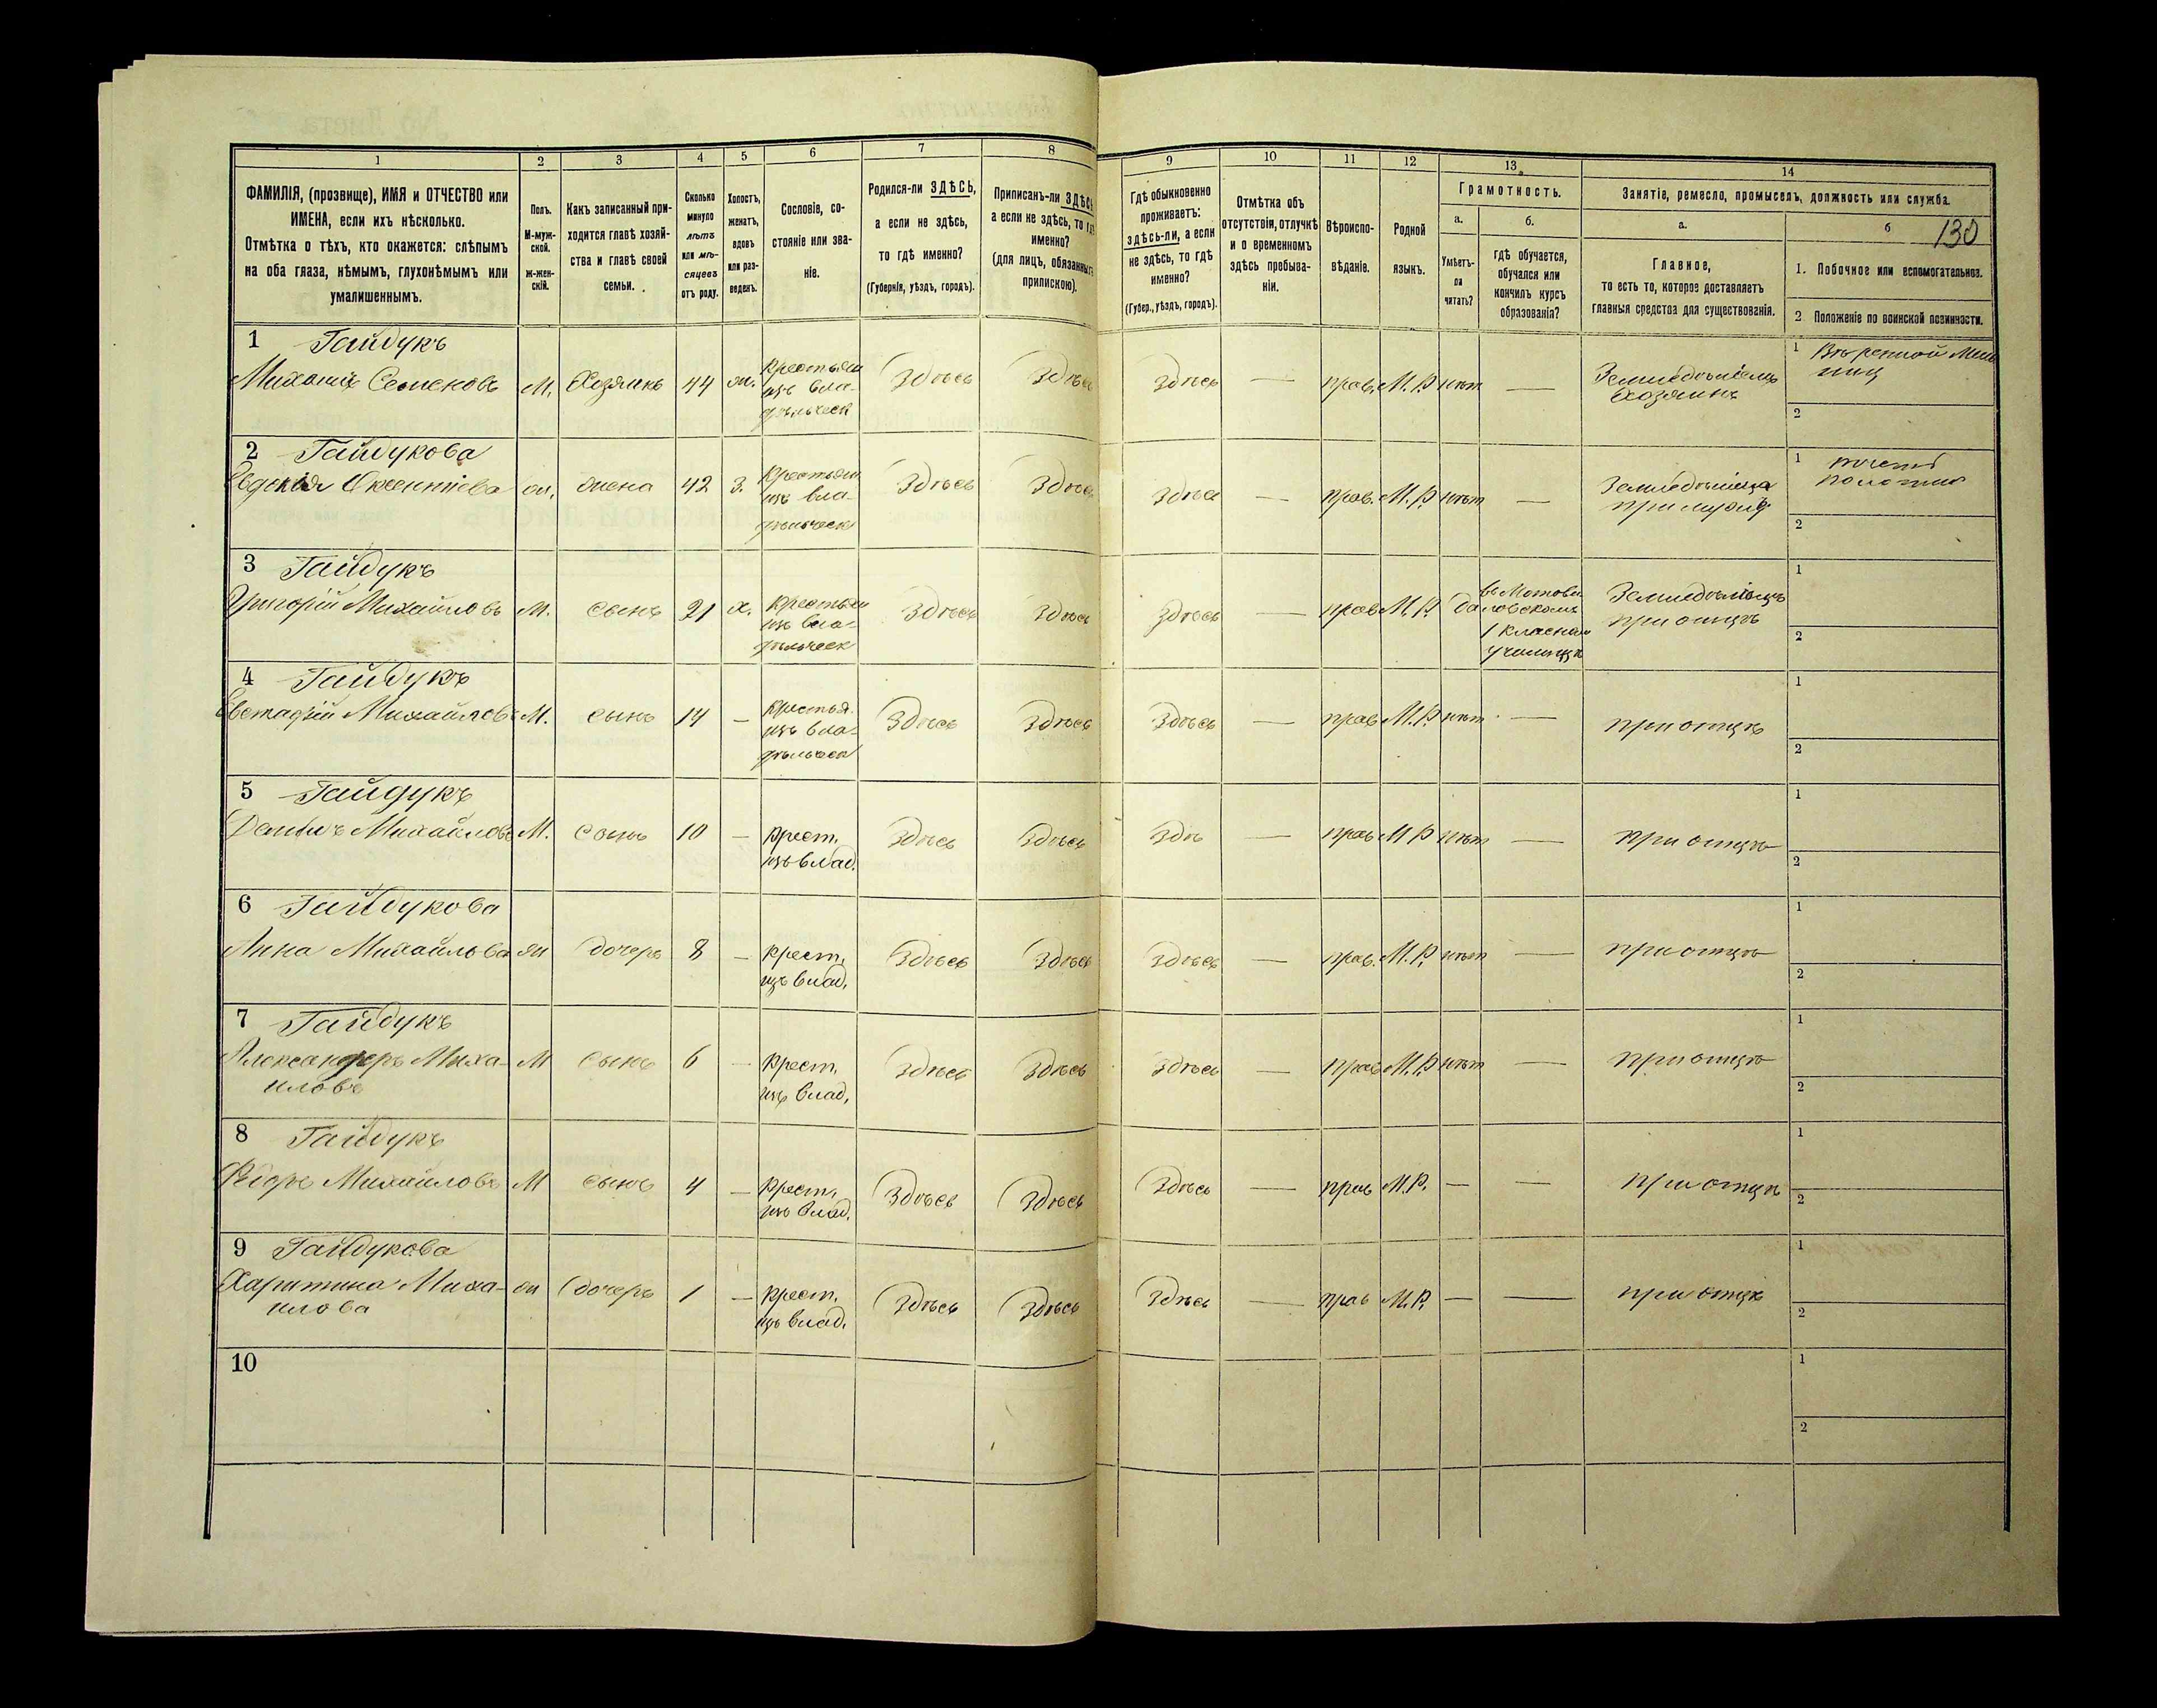 1 2 3 4 5 6 7 8 9 10 11 12 13 14
ФАМИЛІЯ, (прозвище), ИМЯ и ОТЧЕСТВО или
ИМЕНА, если ихъ нѣсколько.
Отмѣтка о тѣхъ, кто окажется: слѣпымъ
на оба глаза, нѣмымъ, глухонѣмымъ или
умалишеннымъ.
Полъ.
М-муж-
ской.
Ж-жен-
скій.
Какъ записанный при-
ходится главѣ хозяй-
ства и главѣ своей
семьи.
Сколько
минуло
лѣтъ
или мѣ-
сяцевъ
отъ роду.
Холостъ,
женатъ,
вдовъ
или раз-
веденъ.
Сословіе, со-
стояніе или зва-
ніе.
Родился-ли ЗДѢСЬ,
а если не здѣсь,
то гдѣ именно?
(Губернія, уѣздъ, городъ).
Приписанъ-ли ЗДѢСЬ
а если не здѣсь, то гдѣ
именно?
(для лицъ, обязанныхъ
припискою).
Гдѣ обыкновенно
проживаетъ:
здѣсь-ли, а если
не здѣсь, то гдѣ
именно?
(Губер., уѣздъ, городъ).
Отмѣтка объ
отсутствіи, отлучкѣ
и о временномъ
здѣсь пребыва-
ніи.
Вѣроиспо-
вѣданіе.
Родной
языкъ.
Грамотность.
а.
Умѣетъ-
ли
читать?
б.
гдѣ обучается,
обучался или
кончилъ курсъ
образованія?
Занятіе, ремесло, промыселъ, должность или служба.
а.
Главное,
то есть то, которое доставляетъ
главныя средства для существованія.
б 130
1. Побочное или вспомогательное.
2 Положеніе по воинской повинности.
1 Гайдукъ
Михаилъ Семеновъ М. Хозяинъ 44 ж. Крестьян изъ вла- дѣльческ Здѣсь Здѣсь Здѣсь — прав. М.Р. нѣт — Земледѣлецъ Хозяинъ
1
2
2 Гайдукова
Евдокія Оксентіева ж. жена 42 З. Крестьян изъ вла- дѣльческ Здѣсь Здѣсь Здѣсь — прав. М.Р. нѣт —
1
2
3 Гайдукъ
Григорій Михайловъ М. сынъ 21 х. Крестьян изъ вла- дѣльческ Здѣсь Здѣсь Здѣсь — прав М.Р. да въ Мотови- ловскомъ 1 класном училищѣ Земледѣлецъ при отцѣ
1
2
4 Гайдукъ
Евстафій Михайловъ М. сынъ 14 — Крестья. изъ вла- дѣльческ Здѣсь Здѣсь Здѣсь — прав М.Р. нѣт — при отцѣ
1
2
5 Гайдукъ
Михайловъ М. сынъ 10 — Крест. изъ влад. Здѣсь Здѣсь Здѣ — прав М Р нѣт — при отцѣ
1
2
6 Гайдукова
Анна Михайлова ж дочерь 8 — Крест. изъ влад. Здѣсь Здѣсь Здѣсь — прав. М.Р. нѣт — при отцѣ
1
2
7 Гайдукъ
Александеръ Миха- М сынъ 6 — Крест. изъ влад. Здѣсь Здѣсь Здѣсь — прав М.Р. нѣт — при отцѣ
иловъ
1
2
8 Гайдукъ
Ѳедоръ Михайловъ М сынъ 4 — Крест. изъ влад. Здѣсь Здѣсь Здѣсь — прав М.Р. — — при отцѣ
1
2
9 Гайдукова
Харитина Миха- ж дочерь 1 — Крест. изъ влад. Здѣсь Здѣсь Здѣсь — прав М.Р. — — при отцѣ
илова
1
2
10
1
2